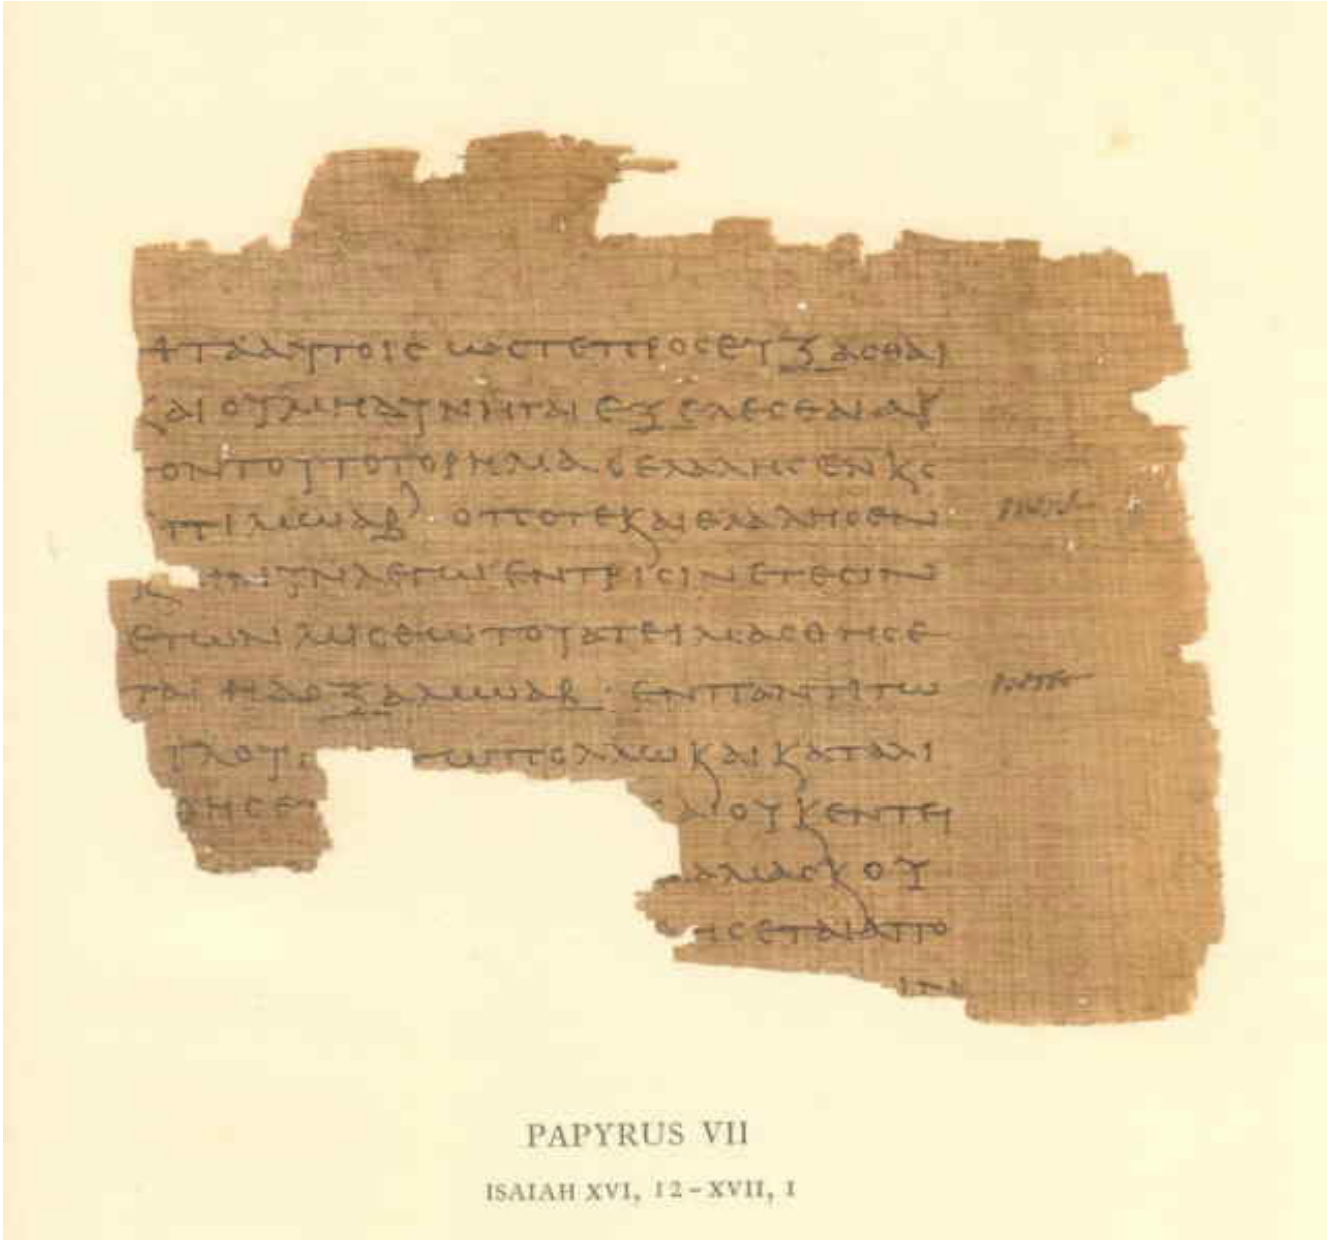 ΗΤΑΑΥΤΟΙϹ ΩϹΤΕΠΡΟϹΕΥΞΑϹΘΑΙ
ΚΑΙ ΟΥΜΗΔΥΝΗΤΑΙ ΕΞΕΛΕϹΘΑΙΑΥ
ΟΝΤΟΥΤΟΤΟΡΗΜΑ ΟΕΛΑΛΗϹΕΝ ΚϹ
ΠΙ ΜΩΑΒ ΟΠΟΤΕΚΑΙΕΛΑΛΗϹΕΝ
Κ ΝΥΝΛΕΓΩ ΕΝΤΡΙϹΙΝΕΤΕϹΙΝ
ΕΤΩΝ ΜΙϹΘΩΤΟΥΑΤΕΙΜΑϹΘΗϹΕ
ΤΑΙ ΗΔΟΞΑΜΩΑΒ · ΕΝΠΑΝΤΙΤΩ
ΠΛΟΥ ΤΩΠΟΛΛΩ ΚΑΙ ΚΑΤΑΛΙ
ΘΗϹΕΤ ΑΙΟΥΚΕΝΤΕΙ
ΑΜΑϹΚΟΥ
ΗϹΕΤΑΙΑΠΟ
PAPYRUS VII
ISAIAH XVI, 12–XVII, 1